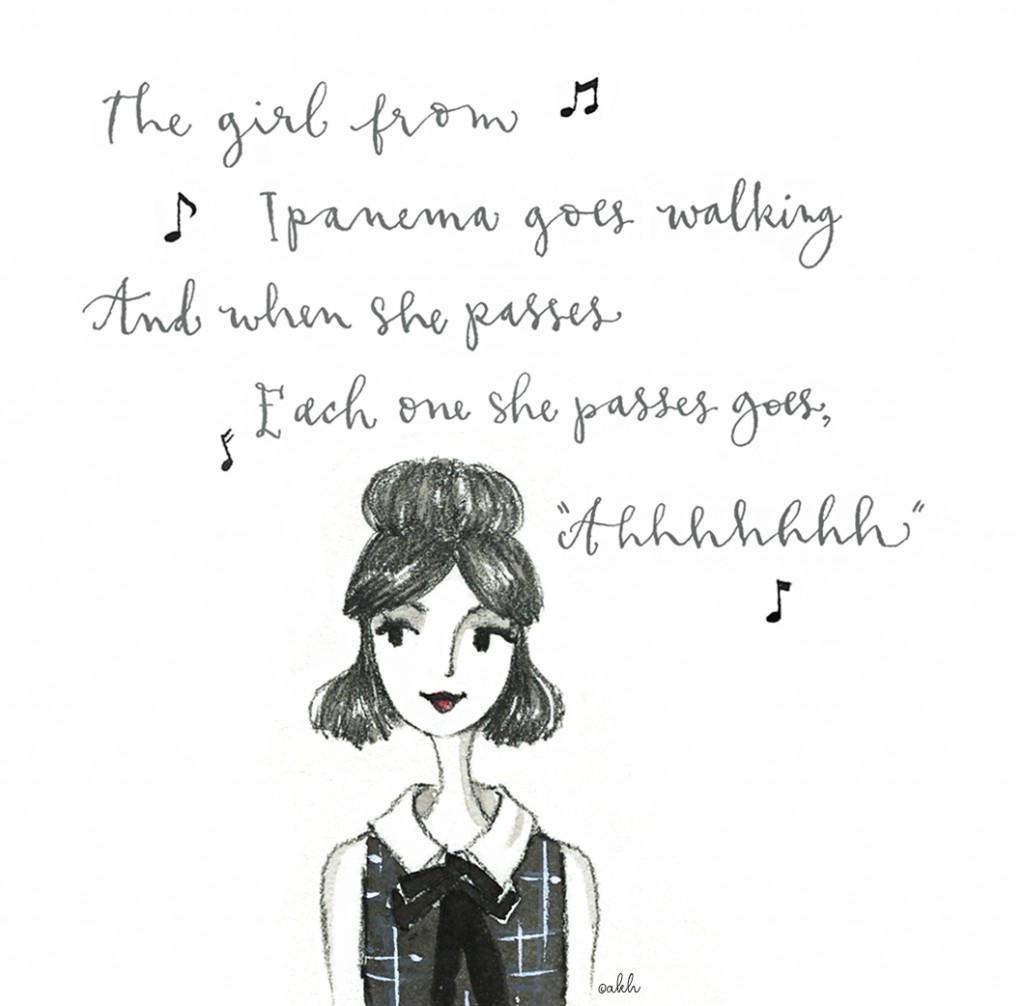 The girl from
Ipanema goes walking
And when she passes
Each one she passes goes,
"Ahhhhhhhh"
©akh